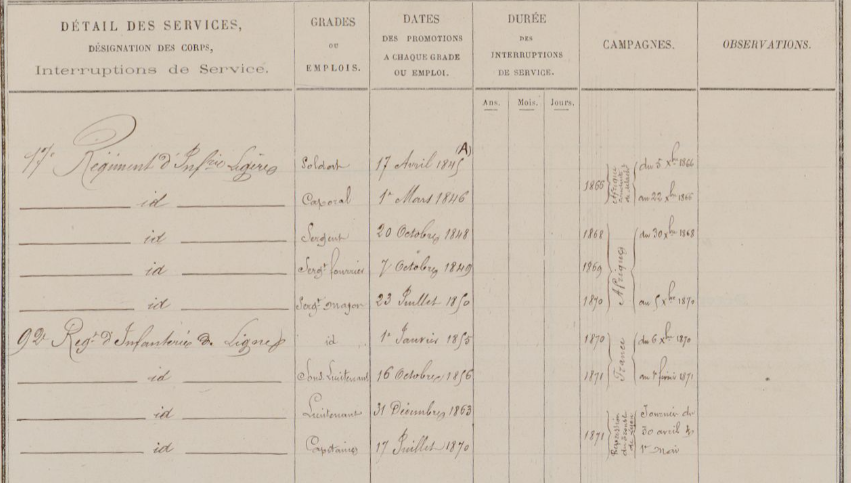 DÉTAIL DES SERVICES,
DÉSIGNATION DES CORPS,
Interruptions de Service.
GRADES
OU
EMPLOIS.
DATES
DES PROMOTIONS
A CHAQUE GRADE
OU EMPLOI.
DURÉE
DES
INTERRUPTIONS
DE SERVICE.
Ans. Mois. Jours.
CAMPAGNES.
OBSERVATIONS.
17e Régiment d'Infrie Légère Soldat 17 Avril 1845 (A)
id Caporal 1er Mars 1846
id Sergent 20 Octobre 1848
id Sergt fourrier 7 Octobre 1849
id Sergt major 23 Juillet 1850
92e Regt d'Infanterie de Ligne id 1er Janvier 1855
id Sous Lieutenant 16 Octobre 1856
id Lieutenant 31 Décembre 1863
id Capitaine 17 Juillet 1870
1866 du 5 Xbre 1866
au 22 Xbre 1866
1868 du 30 Xbre 1868
1869 Afrique
1870 au 5 Xbre 1870
1870 France du 6 Xbre 1870
1871 au 7 février 1871
1871 Journée du
30 avril &
1er mai